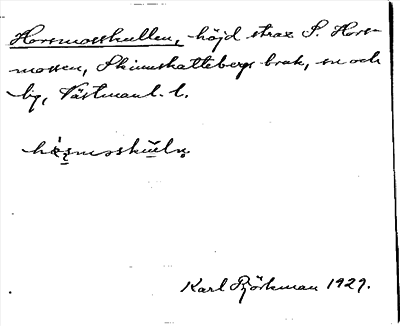 Horsmosskullen, höjd strax S. Hors-
mossen, Skinnskattebergs bruk, sn och
bg, Västmanl. l.
Karl Björkman 1929.